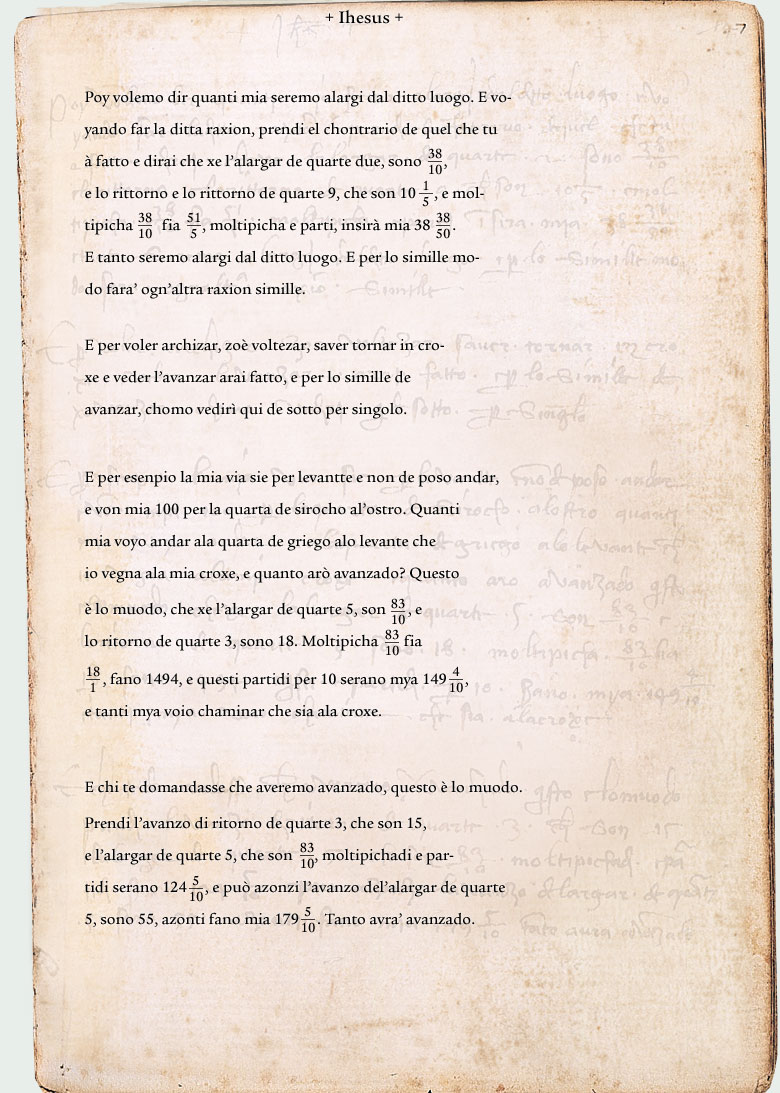 + Ihesus +
7
Poy volemo dir quanti mia seremo alargi dal ditto luogo. E vo-
yando far la ditta raxion, prendi el chontrario de quel che tu
à fatto e dirai che xe l'alargar de quarte due, sono 38/10,
e lo rittorno e lo rittorno de quarte 9, che son 10 1/5, e mol-
tipicha 38/10 fia 51/5, moltipicha e parti, insirà mia 38 38/50.
E tanto seremo alargi dal ditto luogo. E per lo simille mo-
do fara' ogn'altra raxion simille.
E per voler archizar, zoè voltezar, saver tornar in cro-
xe e veder l'avanzar arai fatto, e per lo simille de
avanzar, chomo vedirì qui de sotto per singolo.
E per esenpio la mia via sie per levantte e non de poso andar,
e von mia 100 per la quarta de sirocho al'ostro. Quanti
mia voyo andar ala quarta de griego alo levante che
io vegna ala mia croxe, e quanto arò avanzado? Questo
è lo muodo, che xe l'alargar de quarte 5, son 83/10, e
lo ritorno de quarte 3, sono 18. Moltipicha 83/10 fia
18/1, fano 1494, e questi partidi per 10 serano mya 149 4/10,
e tanti mya voio chaminar che sia ala croxe.
E chi te domandasse che averemo avanzado, questo è lo muodo.
Prendi l'avanzo di ritorno de quarte 3, che son 15,
e l'alargar de quarte 5, che son 83/10, moltipichadi e par-
tidi serano 124 5/10, e può azonzi l'avanzo del'alargar de quarte
5, sono 55, azonti fano mia 179 5/10. Tanto avra' avanzado.